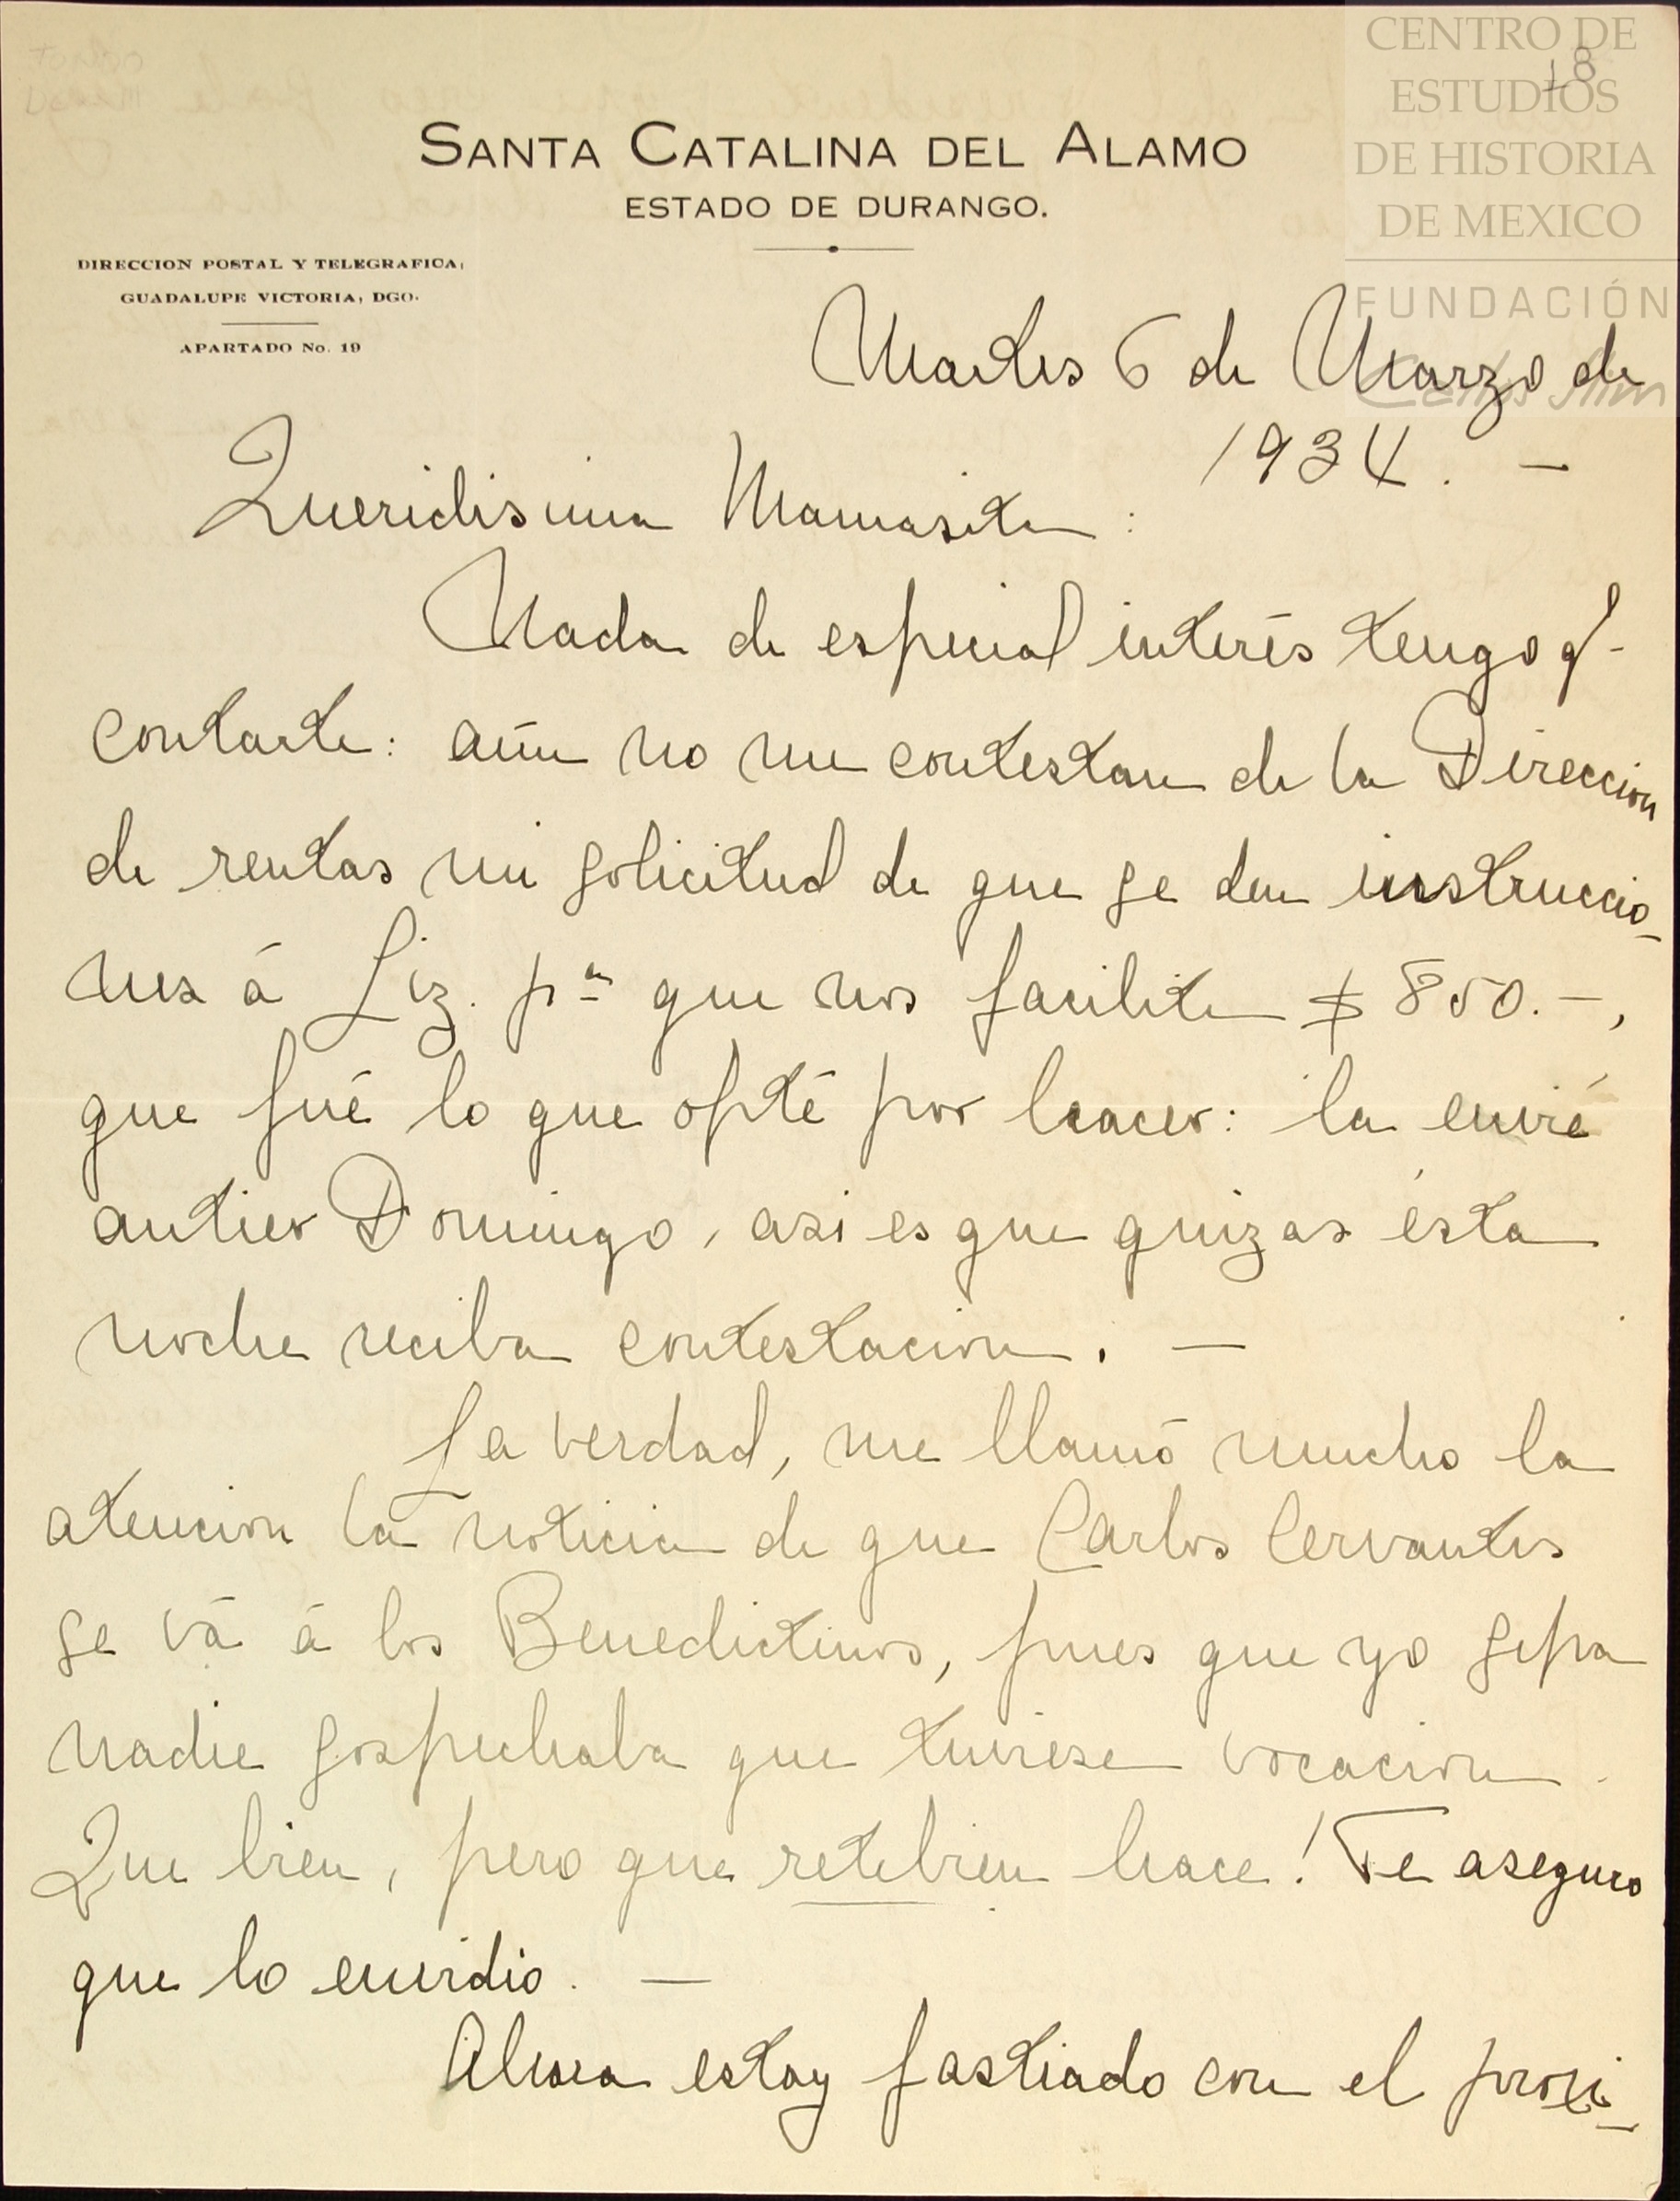 CENTRO DE
ESTUDIOS
DE HISTORIA
DE MEXICO
FUNDACIÓN
Carlos Slim
18
SANTA CATALINA DEL ALAMO
ESTADO DE DURANGO.
DIRECCION POSTAL Y TELEGRAFICA:
GUADALUPE VICTORIA, DGO.
APARTADO No. 19
Martes 6 de Marzo de
1934. —
Queridisima Mamasita:
Nada de especial interés tengo q'
contarte: aún no me contestan de la Direccion
de rentas mi solicitud de que se den instruccio-
nes á Liz. pª que nos facilite $850.—,
que fué lo que opté por hacer: la envié
antier Domingo, asi es que quizas ésta
noche reciba contestacion. —
La verdad, me llamó mucho la
atencion la noticia de que Carlos Cervantes
se vá á los Benedictinos, pues que yo sepa
nadie sospechaba que tuviese vocacion.
Que bien, pero que retebien hace! Te aseguro
que lo envidio. —
Ahora estoy fastiado con el proxi-